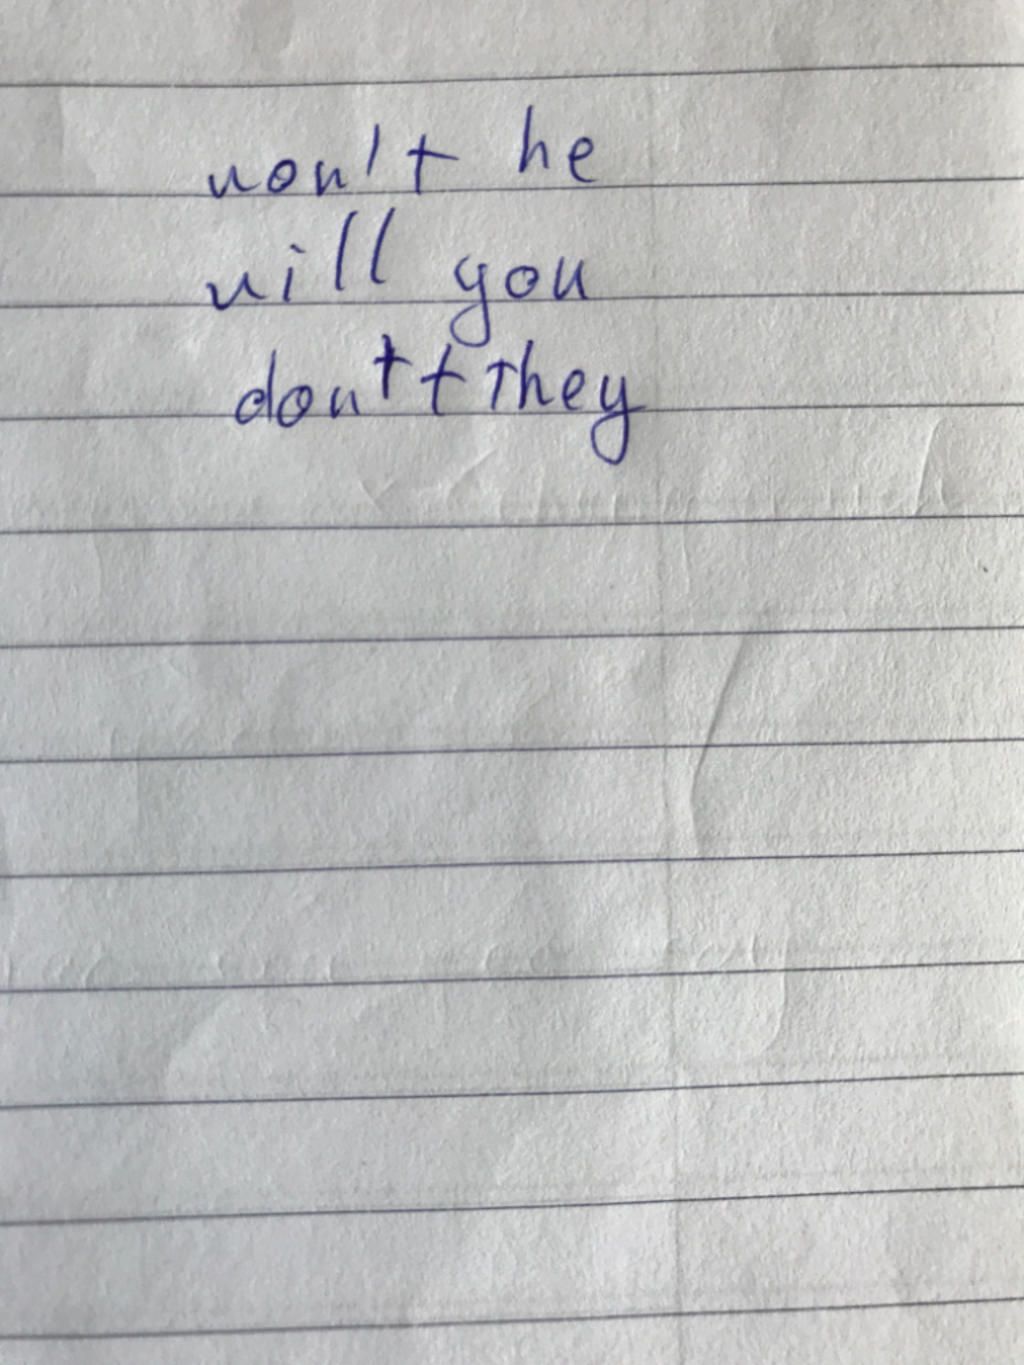 won't he
will you
don't they